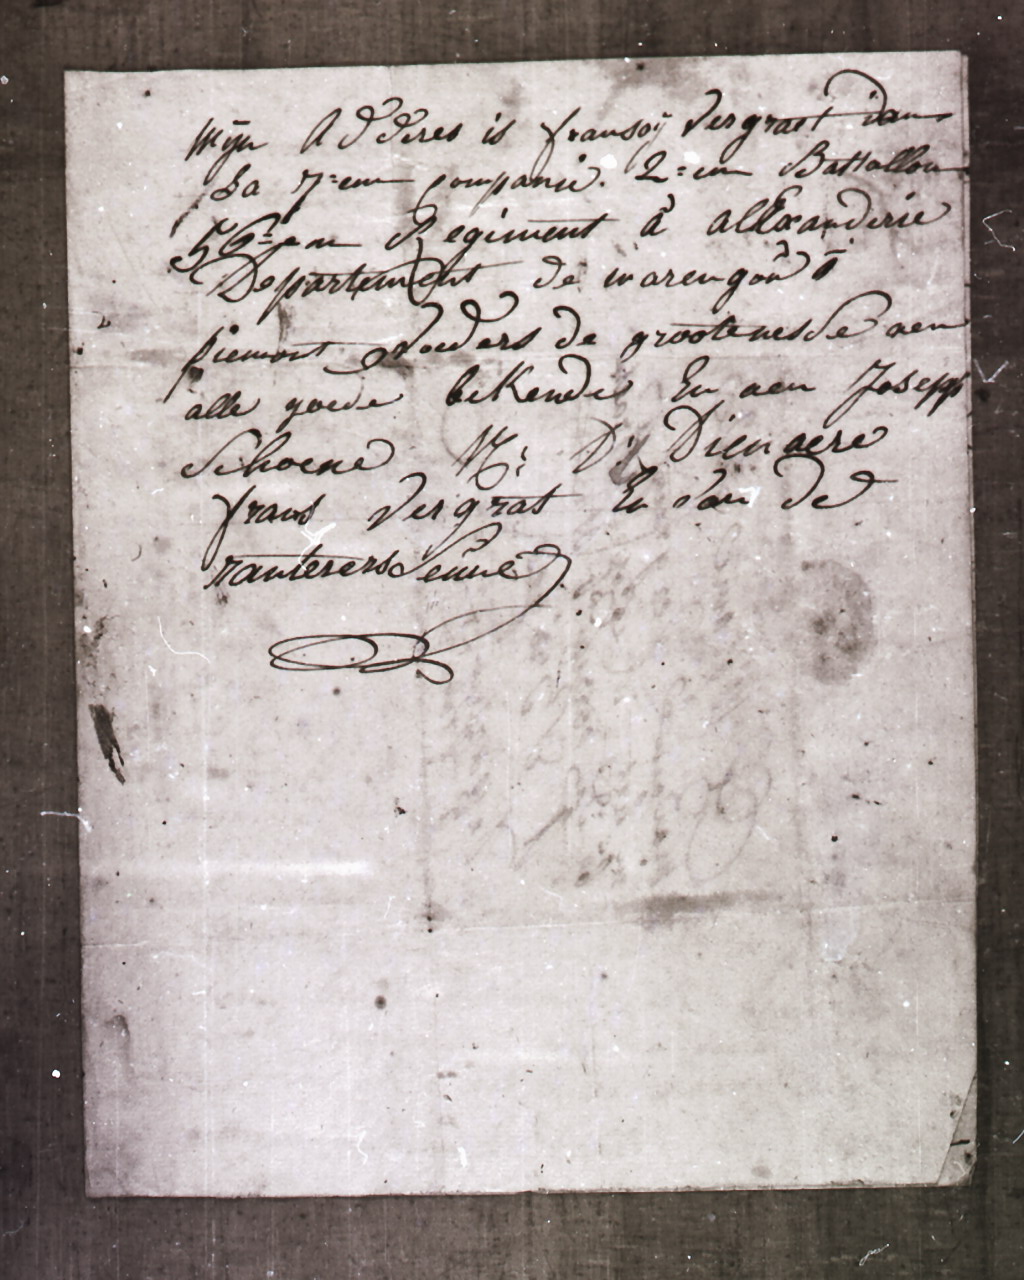 Mijn Adderes is fransoÿ Vergraet dans
La 7=em Companie. 2=em Battallon
56=jem Regiment â allExanderie
Departement de marengôu â
piemont voeders de grootenesse aen
alle goede beKende En aen Joseph
Schoene Dienaere
frans Vergrat En van de